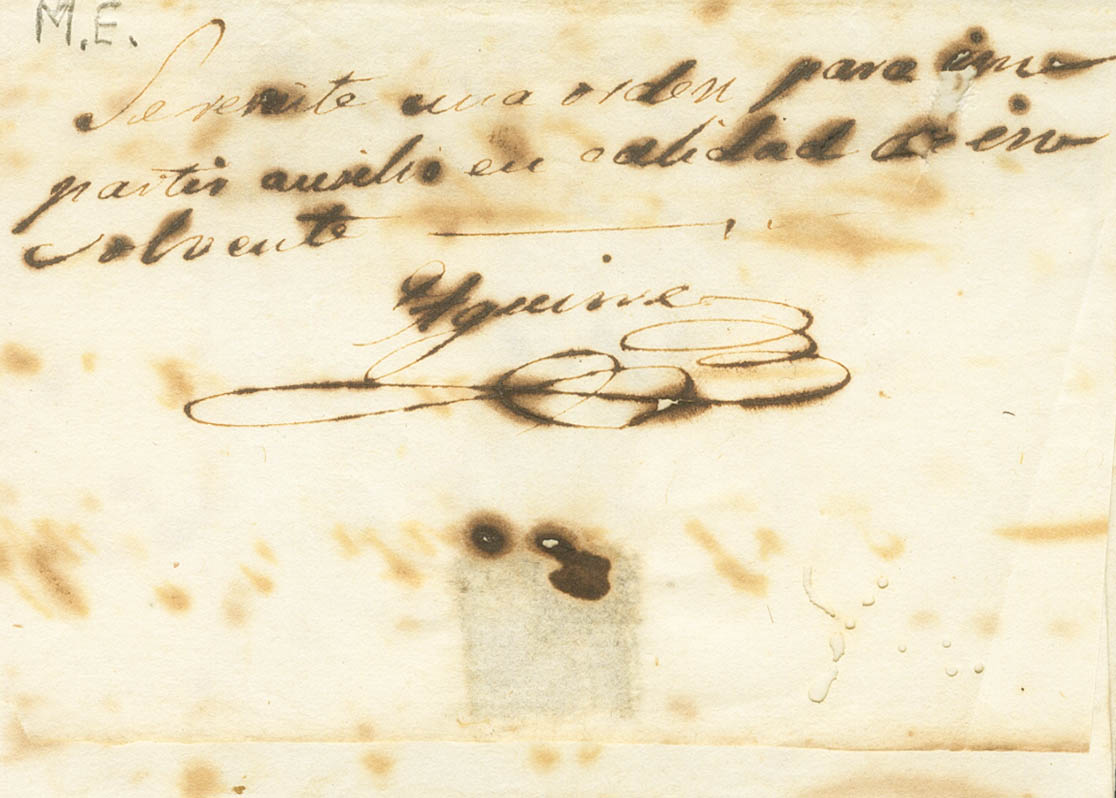 M.E.
Se remite una orden para im
partir ausilio en calidad de in
solvente
Yguinve